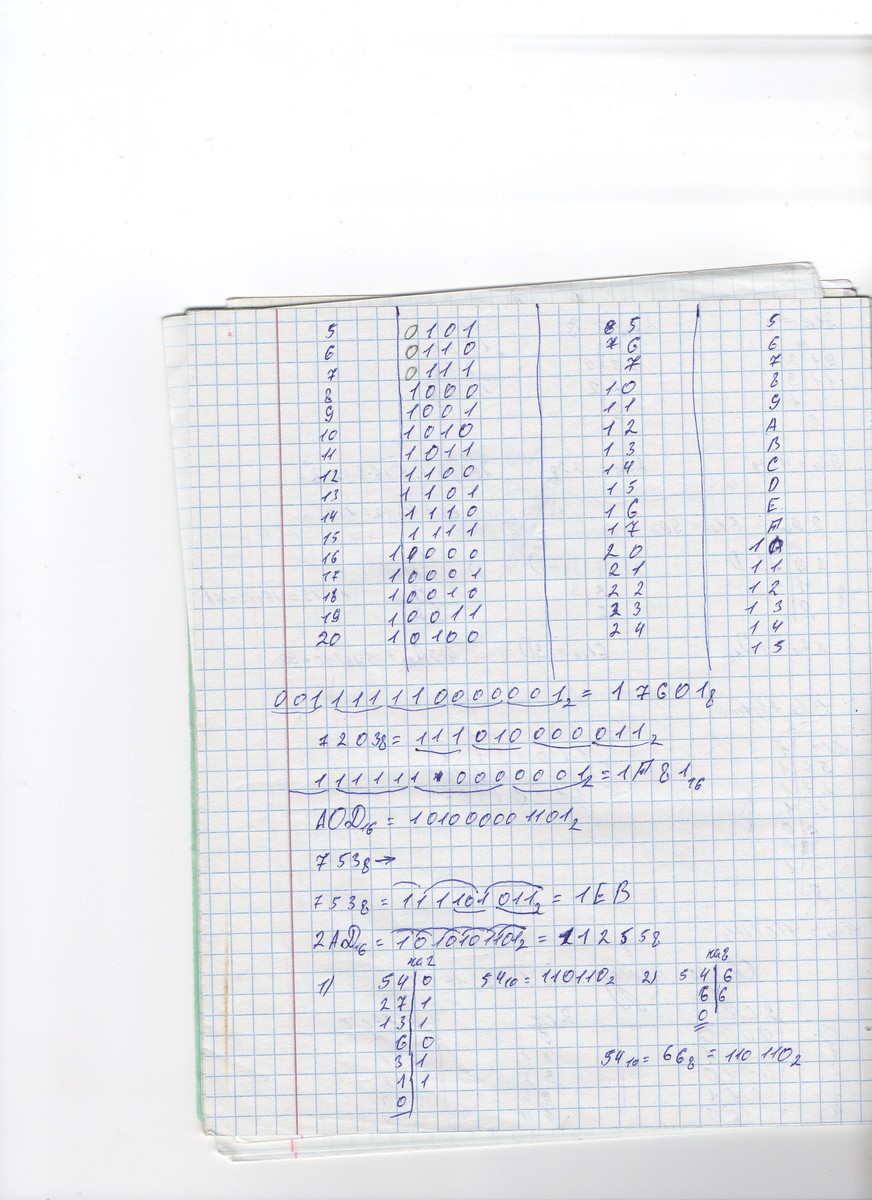 5 0101 5 5
6 0110 6 6
7 0111 7 7
8 1000 10 8
9 1001 11 9
10 1010 12 A
11 1011 13 B
12 1100 14 C
13 1101 15 D
14 1110 16 E
15 1111 17 F
16 10000 20 10
17 10001 21 11
18 10010 22 12
19 10011 23 13
20 10100 24 14
15
001111110000001₂ = 17601₈
7203₈ = 111010000011₂
1111110000001₂ = 1F81₁₆
A0D₁₆ = 101000001101₂
753₈ →
753₈ = 111101011₂ = 1EB
2AD₁₆ = 1010101101₂ = 1255₈
на 2 на 8
1) 54 0 54₁₀ = 110110₂ 2) 54 6
27 1 6 6
13 1 0
6 0
3 1 54₁₀ = 66₈ = 110110₂
1 1
0